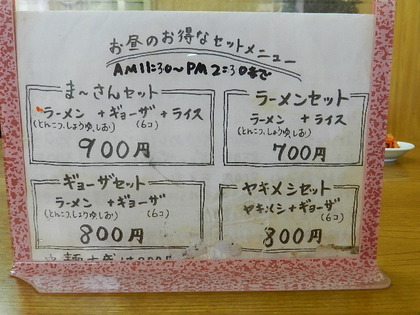 お昼のお得なセットメニュー
AM11:30〜PM2:30まで
ま〜さんセット
ラーメン + ギョーザ + ライス
(とんこつ、しょうゆ、しお) (6コ)
900円
ラーメンセット
ラーメン + ライス
(とんこつ、しょうゆ、しお)
700円
ギョーザセット
ラーメン + ギョーザ
(とんこつ、しょうゆ、しお) (6コ)
800円
ヤキメシセット
ヤキメシ + ギョーザ
(6コ)
800円